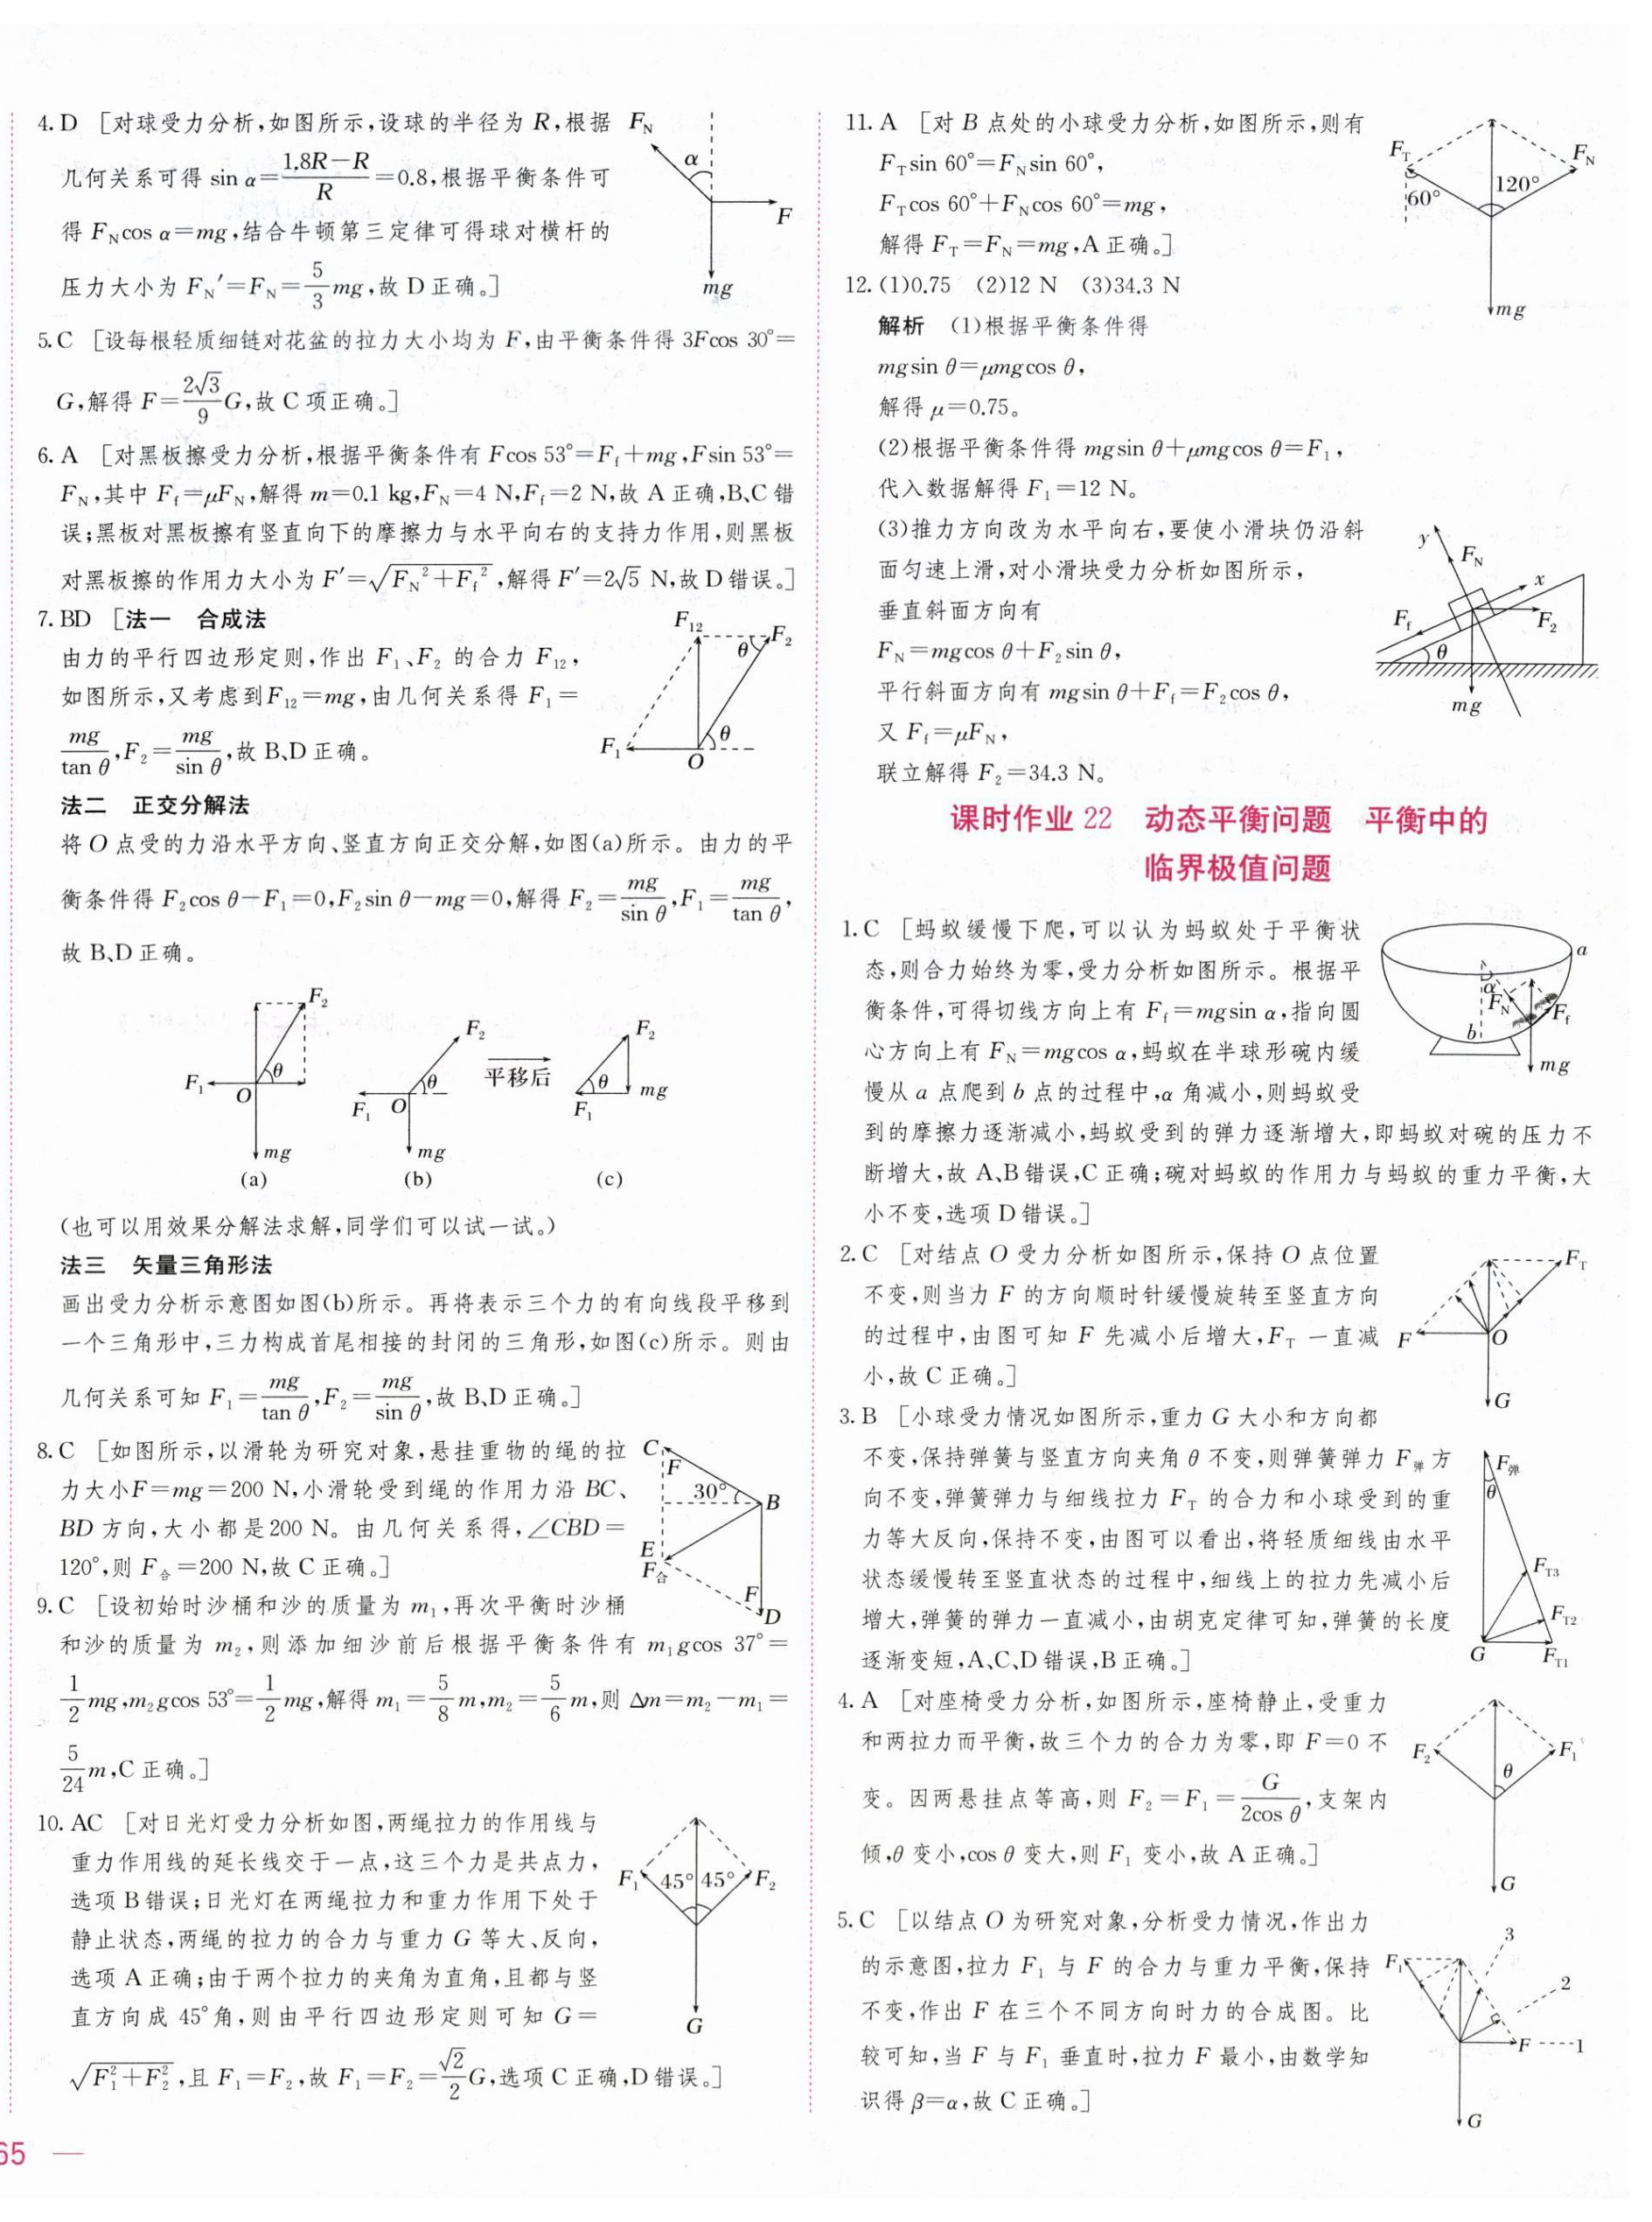 4. D [对球受力分析,如图所示,设球的半径为 R,根据
几何关系可得 sin α=(1.8R−R)/R=0.8,根据平衡条件可
得 F_N cos α=mg,结合牛顿第三定律可得球对横杆的
压力大小为 F_N′=F_N=5/3 mg,故 D 正确。]
F_N
α
F
mg
5. C [设每根轻质细链对花盆的拉力大小均为 F,由平衡条件得 3Fcos 30°=
G,解得 F=2√3/9 G,故 C 项正确。]
6. A [对黑板擦受力分析,根据平衡条件有 Fcos 53°=F_f+mg,Fsin 53°=
F_N,其中 F_f=μF_N,解得 m=0.1 kg,F_N=4 N,F_f=2 N,故 A 正确,B、C 错
误;黑板对黑板擦有竖直向下的摩擦力与水平向右的支持力作用,则黑板
对黑板擦的作用力大小为 F′=√(F_N²+F_f²),解得 F′=2√5 N,故 D 错误。]
7. BD [法一 合成法
由力的平行四边形定则,作出 F₁、F₂ 的合力 F₁₂,
如图所示,又考虑到F₁₂=mg,由几何关系得 F₁=
mg/tan θ,F₂=mg/sin θ,故 B、D 正确。
F₁₂
θ
F₂
F₁
θ
O
法二 正交分解法
将 O 点受的力沿水平方向、竖直方向正交分解,如图(a)所示。由力的平
衡条件得 F₂cos θ−F₁=0,F₂sin θ−mg=0,解得 F₂=mg/sin θ,F₁=mg/tan θ,
故 B、D 正确。
F₂
F₁
θ
O
mg
(a)
F₂
θ
F₁
O
mg
(b)
平移后
F₂
θ
mg
F₁
(c)
(也可以用效果分解法求解,同学们可以试一试。)
法三 矢量三角形法
画出受力分析示意图如图(b)所示。再将表示三个力的有向线段平移到
一个三角形中,三力构成首尾相接的封闭的三角形,如图(c)所示。则由
几何关系可知 F₁=mg/tan θ,F₂=mg/sin θ,故 B、D 正确。]
8. C [如图所示,以滑轮为研究对象,悬挂重物的绳的拉
力大小F=mg=200 N,小滑轮受到绳的作用力沿 BC、
BD 方向,大小都是200 N。由几何关系得,∠CBD=
120°,则 F合=200 N,故 C 正确。]
C
F
30°
B
E
F合
F
D
9. C [设初始时沙桶和沙的质量为 m₁,再次平衡时沙桶
和沙的质量为 m₂,则添加细沙前后根据平衡条件有 m₁gcos 37°=
1/2 mg,m₂gcos 53°=1/2 mg,解得 m₁=5/8 m,m₂=5/6 m,则 Δm=m₂−m₁=
5/24 m,C 正确。]
10. AC [对日光灯受力分析如图,两绳拉力的作用线与
重力作用线的延长线交于一点,这三个力是共点力,
选项 B 错误;日光灯在两绳拉力和重力作用下处于
静止状态,两绳的拉力的合力与重力 G 等大、反向,
选项 A 正确;由于两个拉力的夹角为直角,且都与竖
直方向成 45°角,则由平行四边形定则可知 G=
√(F₁²+F₂²),且 F₁=F₂,故 F₁=F₂=√2/2 G,选项 C 正确,D 错误。]
F₁
45°
45°
F₂
G
65
11. A [对 B 点处的小球受力分析,如图所示,则有
F_T sin 60°=F_N sin 60°,
F_T cos 60°+F_N cos 60°=mg,
解得 F_T=F_N=mg,A 正确。]
F_T
F_N
120°
60°
mg
12. (1)0.75 (2)12 N (3)34.3 N
解析 (1)根据平衡条件得
mgsin θ=μmgcos θ,
解得 μ=0.75。
(2)根据平衡条件得 mgsin θ+μmgcos θ=F₁,
代入数据解得 F₁=12 N。
(3)推力方向改为水平向右,要使小滑块仍沿斜
面匀速上滑,对小滑块受力分析如图所示,
垂直斜面方向有
F_N=mgcos θ+F₂sin θ,
平行斜面方向有 mgsin θ+F_f=F₂cos θ,
又 F_f=μF_N,
联立解得 F₂=34.3 N。
y
F_N
x
F_f
F₂
θ
mg
课时作业 22 动态平衡问题 平衡中的
临界极值问题
1. C [蚂蚁缓慢下爬,可以认为蚂蚁处于平衡状
态,则合力始终为零,受力分析如图所示。根据平
衡条件,可得切线方向上有 F_f=mgsin α,指向圆
心方向上有 F_N=mgcos α,蚂蚁在半球形碗内缓
慢从 a 点爬到 b 点的过程中,α 角减小,则蚂蚁受
到的摩擦力逐渐减小,蚂蚁受到的弹力逐渐增大,即蚂蚁对碗的压力不
断增大,故 A、B 错误,C 正确;碗对蚂蚁的作用力与蚂蚁的重力平衡,大
小不变,选项 D 错误。]
a
α
F_N
F_f
b
mg
2. C [对结点 O 受力分析如图所示,保持 O 点位置
不变,则当力 F 的方向顺时针缓慢旋转至竖直方向
的过程中,由图可知 F 先减小后增大,F_T 一直减
小,故 C 正确。]
F_T
F
O
G
3. B [小球受力情况如图所示,重力 G 大小和方向都
不变,保持弹簧与竖直方向夹角 θ 不变,则弹簧弹力 F弹 方
向不变,弹簧弹力与细线拉力 F_T 的合力和小球受到的重
力等大反向,保持不变,由图可以看出,将轻质细线由水平
状态缓慢转至竖直状态的过程中,细线上的拉力先减小后
增大,弹簧的弹力一直减小,由胡克定律可知,弹簧的长度
逐渐变短,A、C、D 错误,B 正确。]
F弹
θ
F_T3
F_T2
G
F_T1
4. A [对座椅受力分析,如图所示,座椅静止,受重力
和两拉力而平衡,故三个力的合力为零,即 F=0 不
变。因两悬挂点等高,则 F₂=F₁=G/(2cos θ),支架内
倾,θ 变小,cos θ 变大,则 F₁ 变小,故 A 正确。]
F₂
F₁
θ
G
5. C [以结点 O 为研究对象,分析受力情况,作出力
的示意图,拉力 F₁ 与 F 的合力与重力平衡,保持
不变,作出 F 在三个不同方向时力的合成图。比
较可知,当 F 与 F₁ 垂直时,拉力 F 最小,由数学知
识得 β=α,故 C 正确。]
3
F₁
2
F
1
G